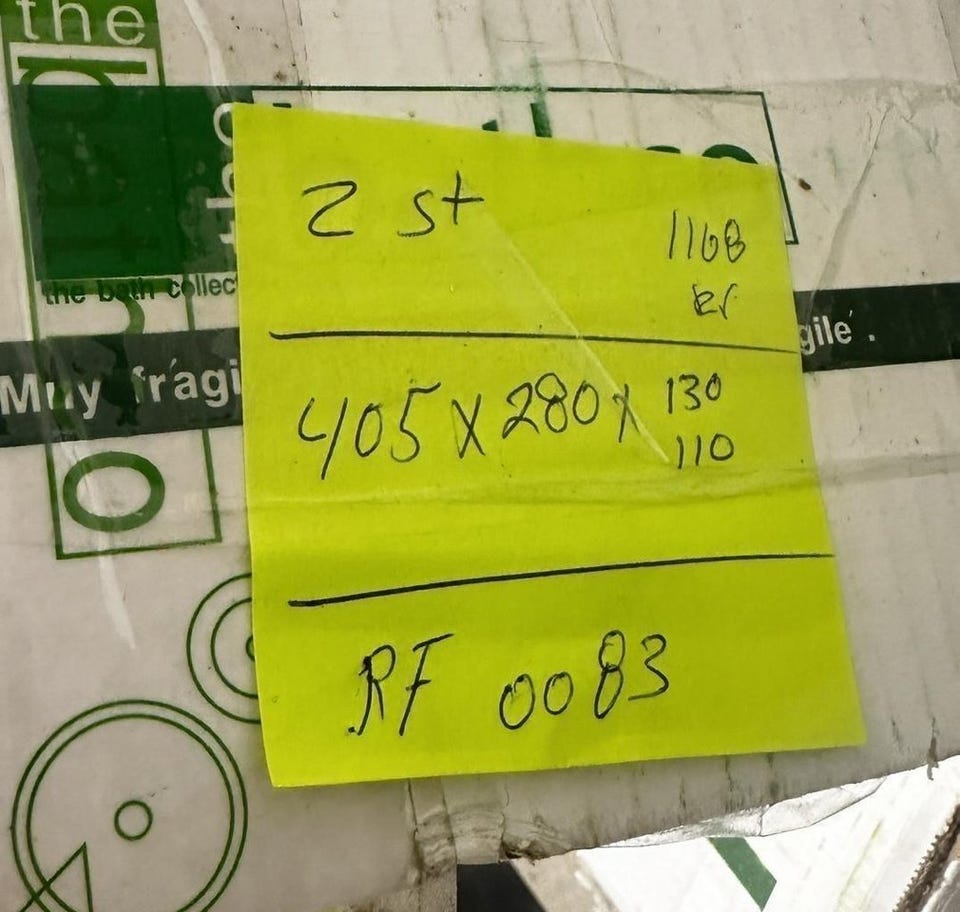 the
the bath collec
Muy fragi
gilé.
2 st
1168
kr
405 x 280 x 130
110
RF 0083